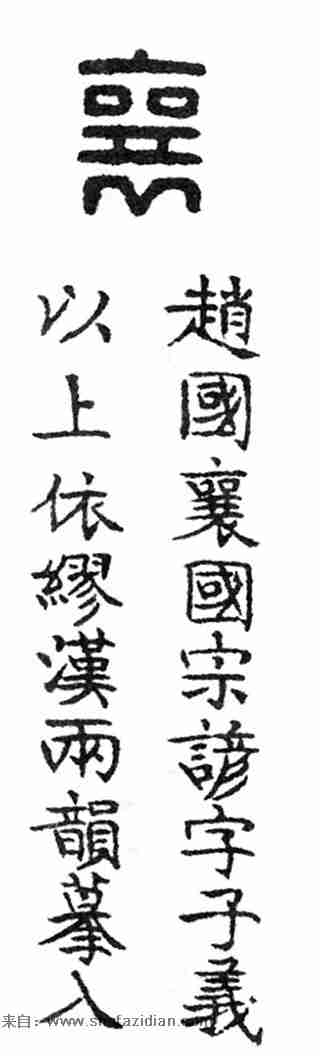 襄
趙國襄國宗諺字子義
以上依繆漢兩韻摹入
来自：www.shufazidian.com